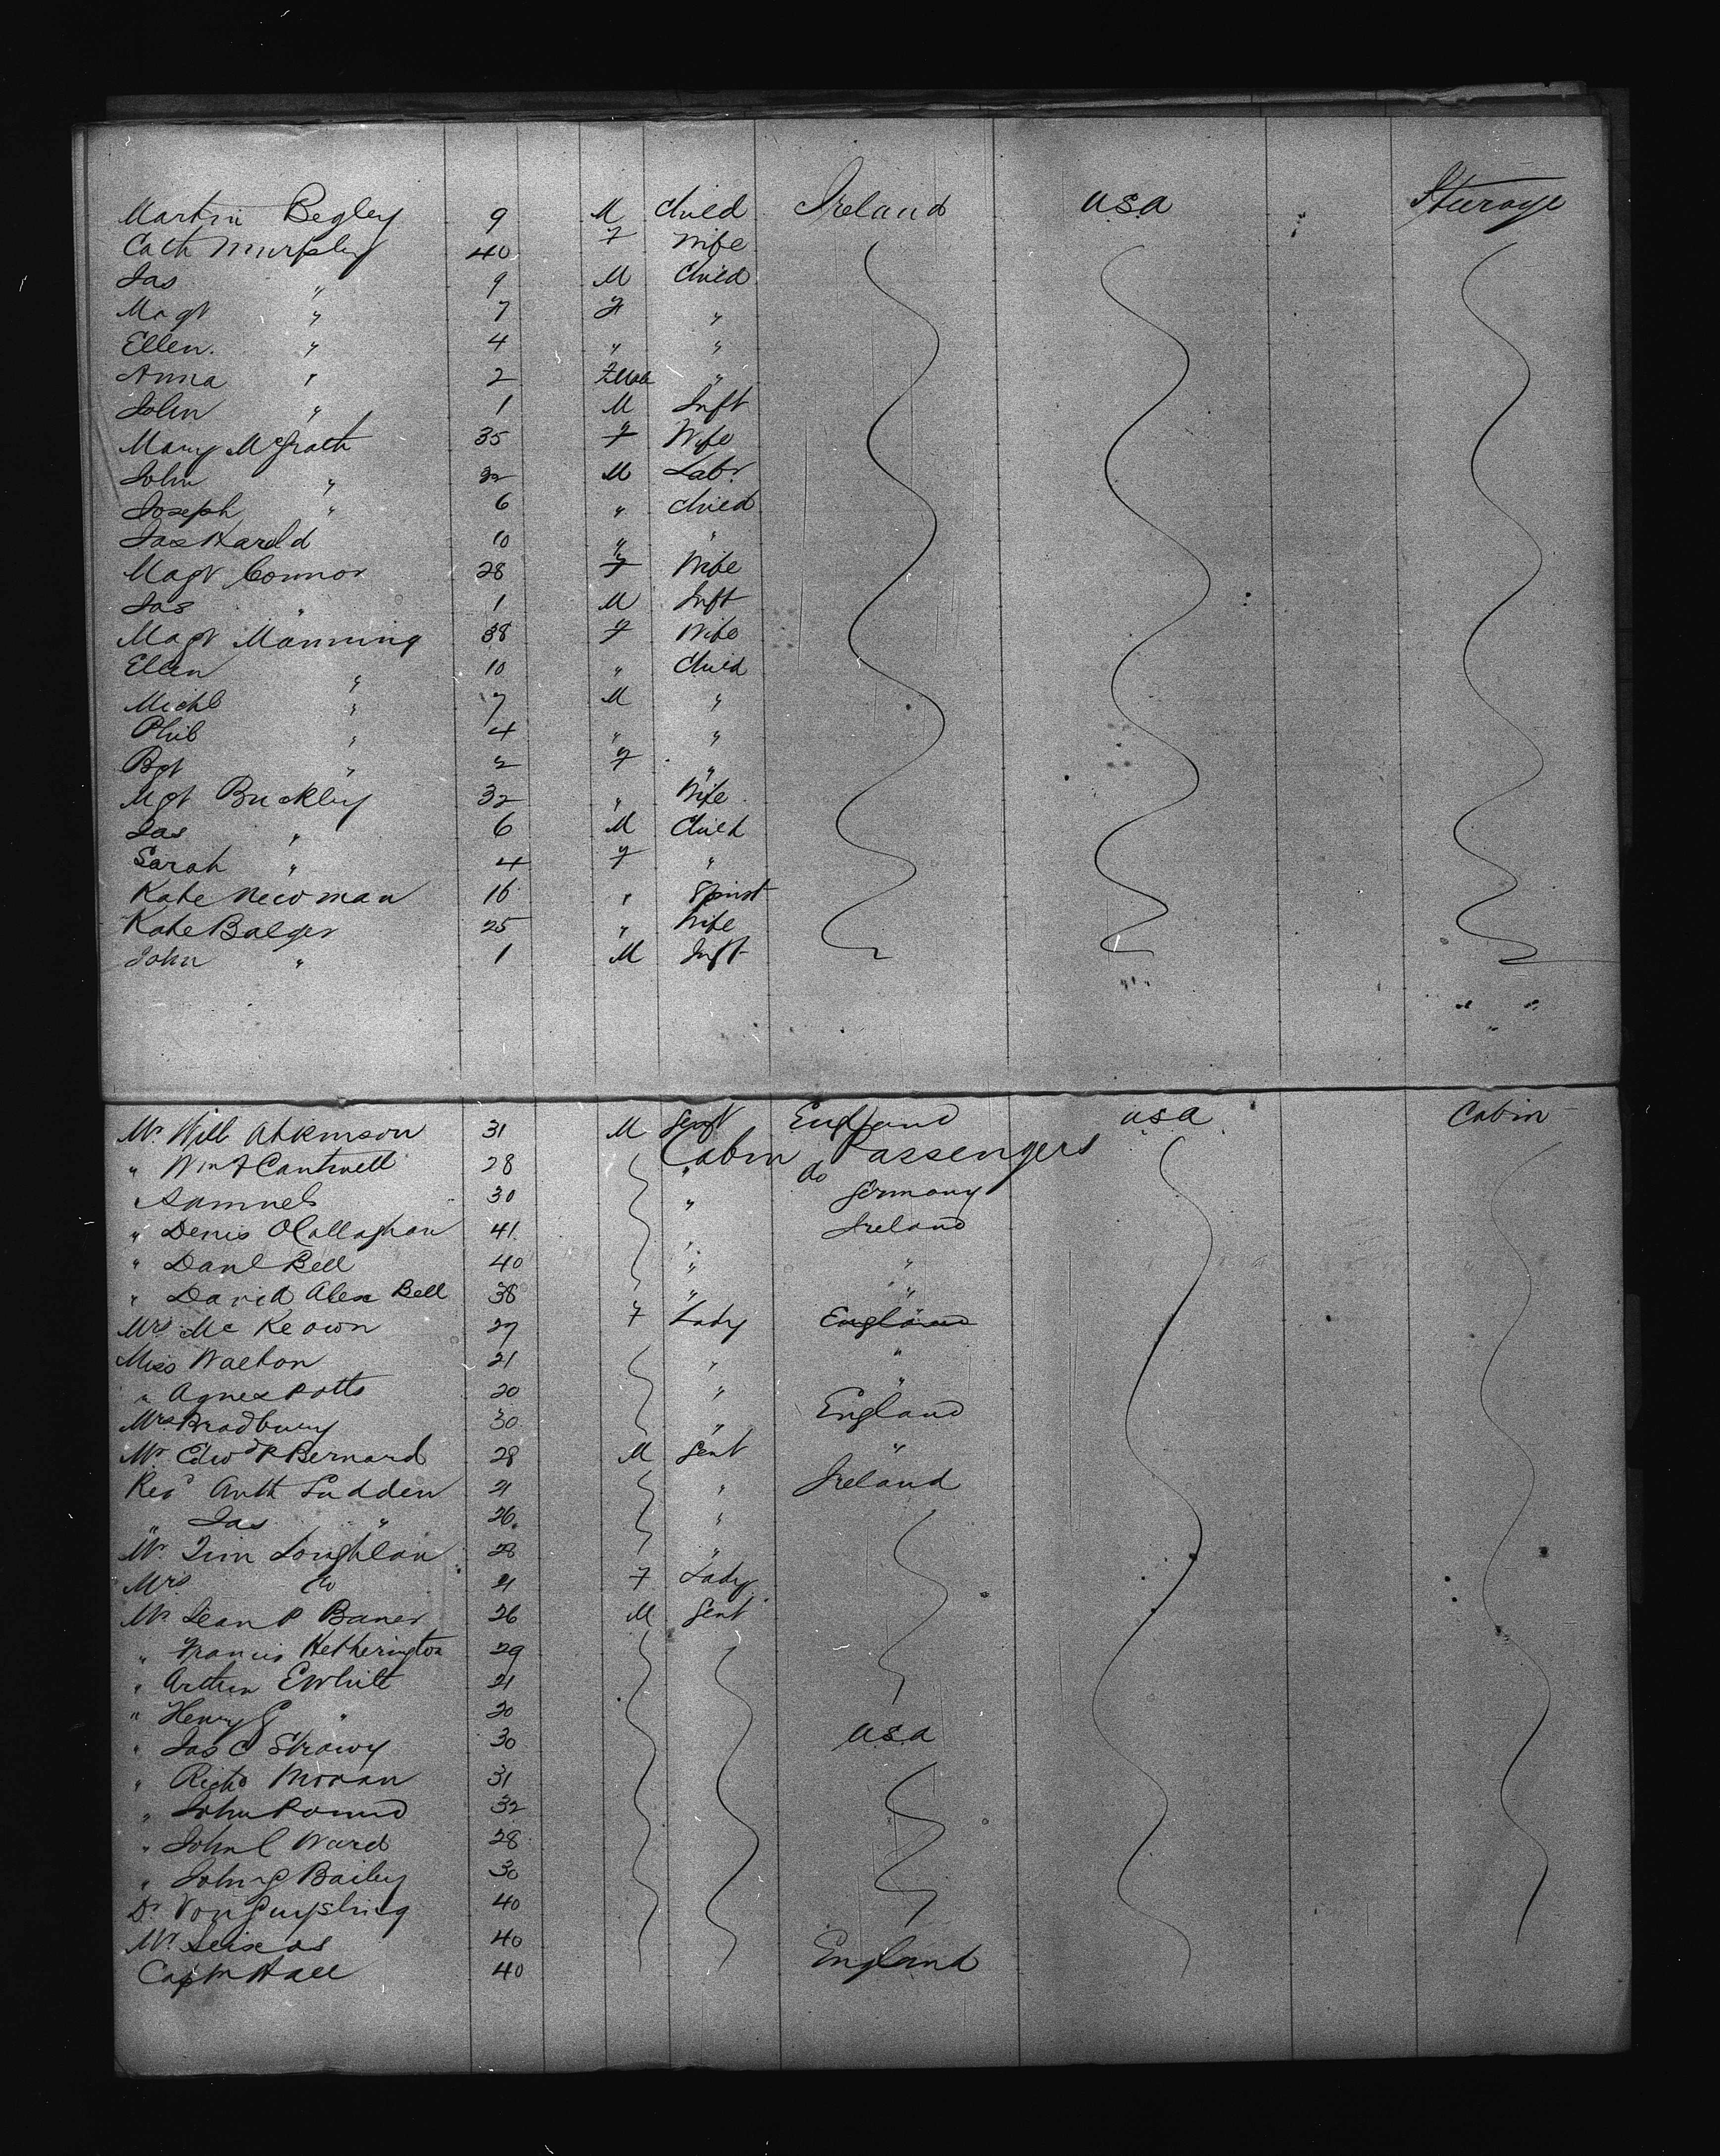 Martin Begley 9 M Child Ireland USA Sturage
Cath Murphy 40 F Wife
Jas " 9 M Child
Magt " 7 F "
Ellen " 4 " "
Anna " 2 "
John " 1 M Inft
Mary McGrath 35 F Wife
John " 32 M Labr
Joseph " 6 " Child
Jas Harold 10 " "
Magt Connor 28 F Wife
Jas " 1 M Inft
Magt Manning 38 F Wife
Ellen " 10 " Child
Michl " 7 M "
Phil " 4 " "
Bgt " 2 F "
Mgt Buckley 32 " Wife
Jas " 6 M Child
Sarah " 4 F "
Kate Newman 16 " Spinst
Kate Balger 25 " Wife
John " 1 M Inft
Mr Will Atkinson 31 M Gent England USA Cabin
Cabin Passengers
" Wm F Cantwell 28 " do
" Samuels 30 " Germany
" Denis OCallaghan 41 " Ireland
" Danl Bell 40 " "
" David Alex Bell 38 " "
Mrs Mc Keown 27 F Lady England
Miss Walton 21 " "
" Agnes Potts 20 " "
Mrs Bradbury 30 " England
Mr Edwd P Bernard 28 M Gent "
Revd Anth Ludden 21 " Ireland
" Jas " 26 "
Mr Tim Loughlan 28 "
Mrs do 21 F Lady
Mr Lean P Baner 26 M Gent
" Francis Hetherington 29
" Arthur E White 21
" Henry G " 20
" Jas C Strawy 30 USA
" Richd Moran 31
" John Pound 32
" John C Ward 28
" John G Bailey 30
Dr Von 40
Mr Seixas 40
Captn Hall 40 England